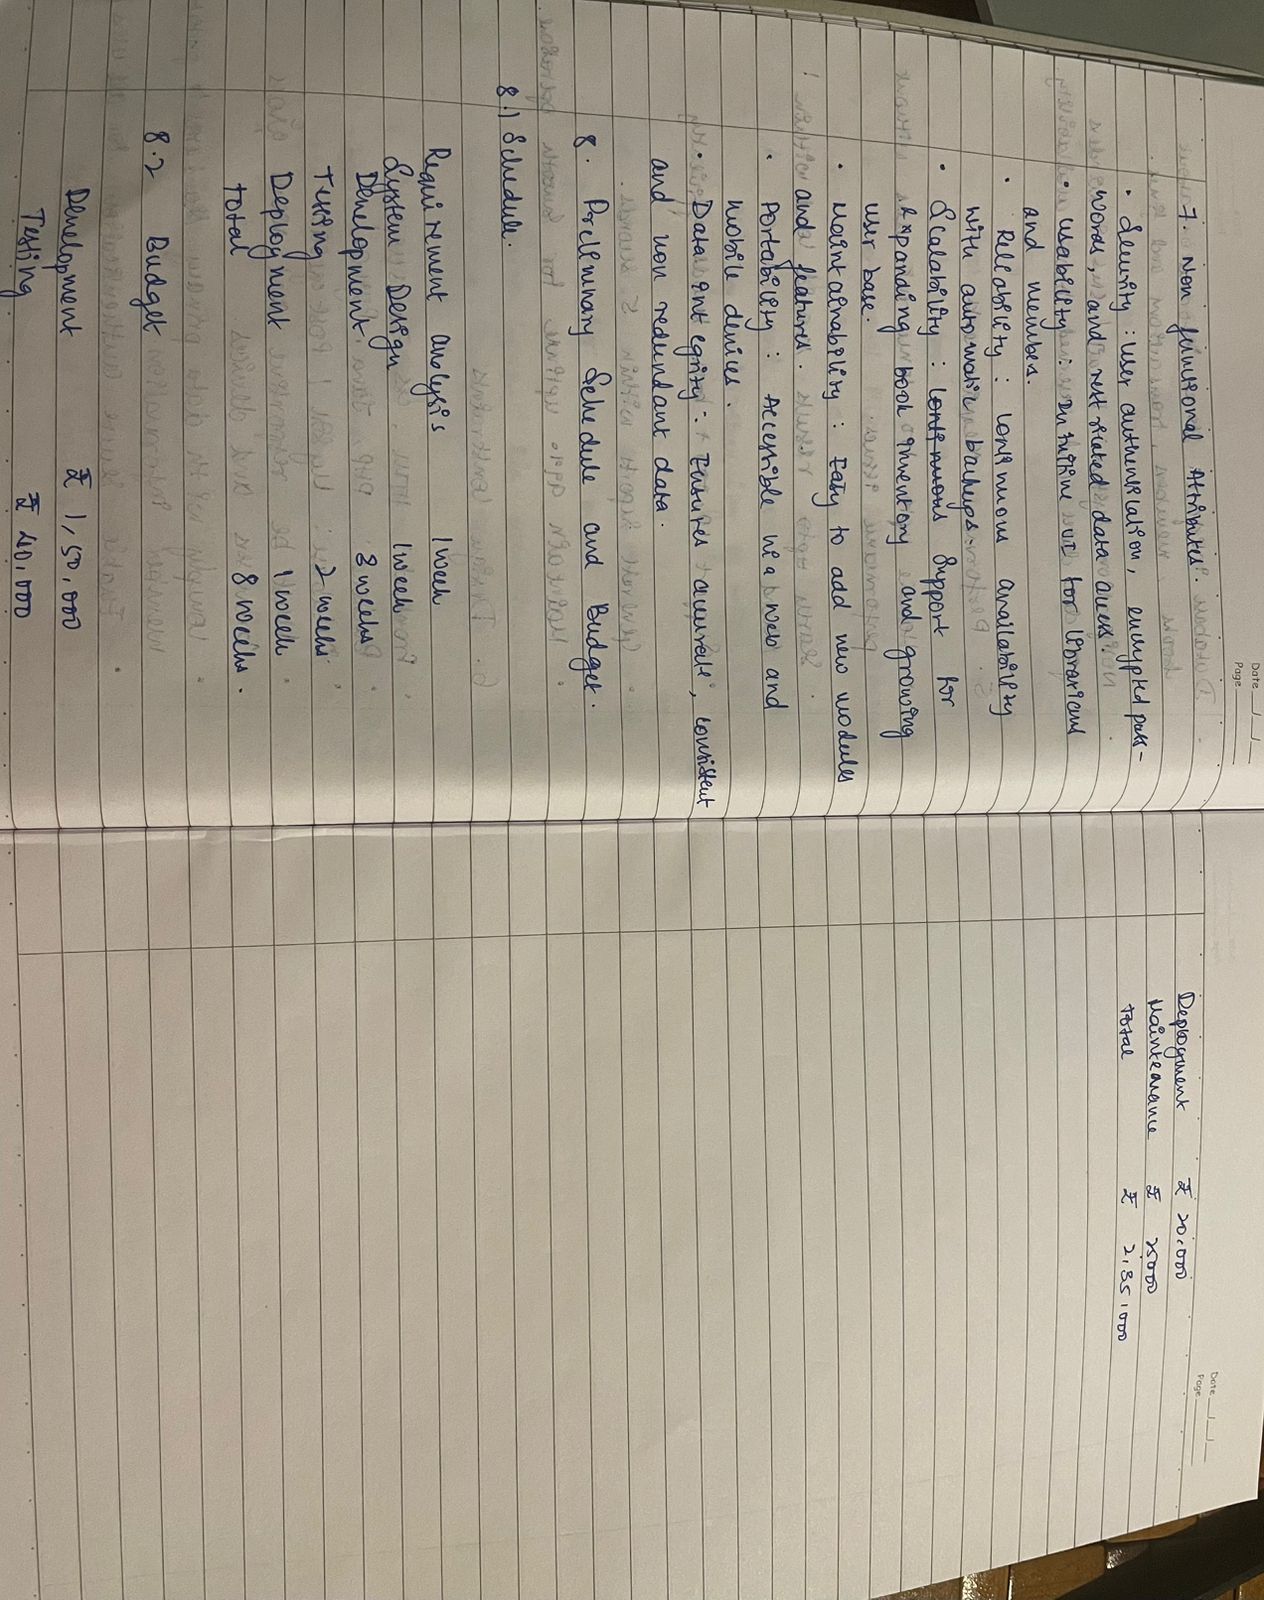 Date __/__/__
Page ____
7. Non functional Attributes.
• Security : user authentication, encrypted pass-
words, and restricted data access.
• usability : Intuitive UI for librarians
and members.
• Reliability : Continuous availability
with automatic backups.
• Scalability : Continuous support for
expanding book inventory and growing
user base.
• Maintainability : Easy to add new modules
and features.
• Portability : Accessible via web and
mobile devices.
• Data integrity : Ensures accurate, consistent
and non redundant data.
8. Preliminary Schedule and Budget.
8.1 Schedule.
Requirement analysis 1 week
System Design 1 week
Development 3 weeks
Testing 2 weeks
Deployment 1 week
total 8 weeks.
8.2 Budget
Development ₹ 1,50,000
Testing ₹ 40,000
Date __/__/__
Page ____
Deployment ₹ 20,000
Mainteanance ₹ 25000
total ₹ 2,35,000